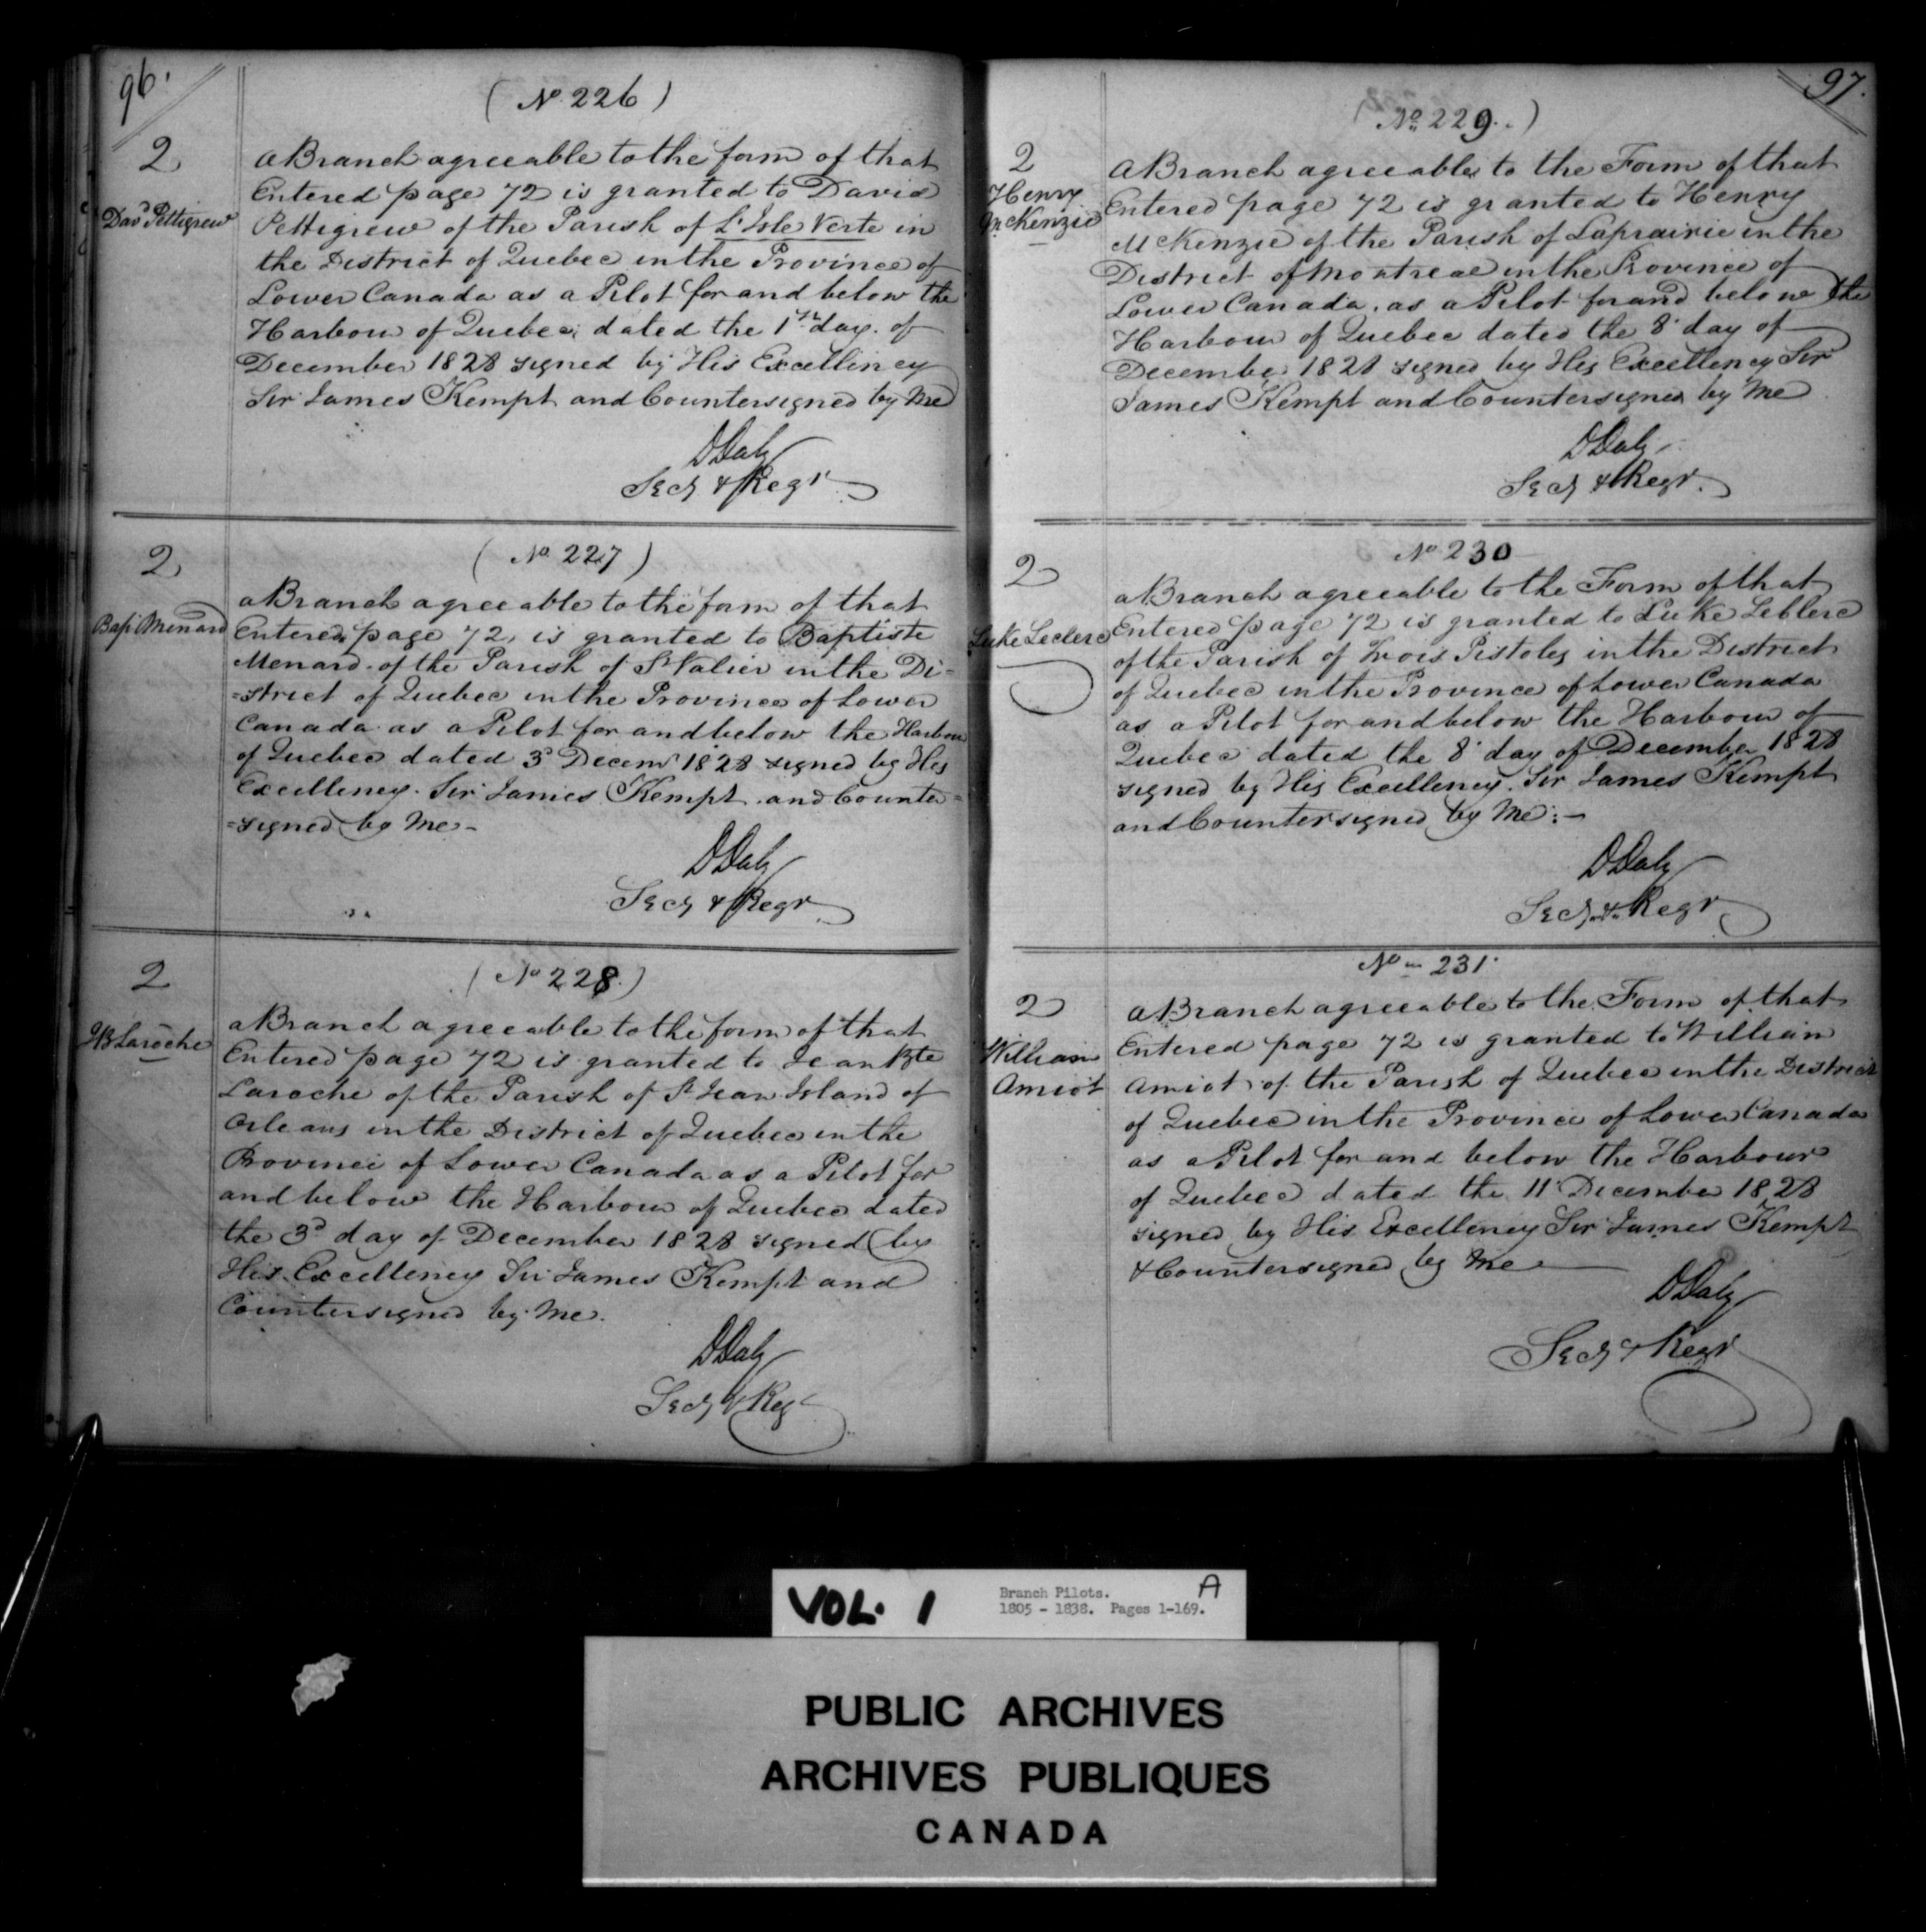 96.
(No 226)
2
Davd Pettigrew
a Branch agreeable to the form of that
Entered page 72 is granted to David
Pettigrew of the Parish of L'Isle Verte in
the District of Quebec in the Province of
Lower Canada as a Pilot for and below the
Harbour of Quebec dated the 1st day of
December 1828 signed by His Excellency
Sir James Kempt and Countersigned by Me
DDaly
Secy & Regr
(No 227)
2
Bapt Menard
a Branch agreeable to the form of that
Entered page 72, is granted to Baptiste
Menard of the Parish of St Valier in the Di-
=strict of Quebec in the Province of Lower
Canada as a Pilot for and below the Harbour
of Quebec dated 3d Decemr 1828 signed by His
Excellency Sir James Kempt and Counter=
=signed by Me-
DDaly
Secy & Regr
(No 228.)
2
JB Laroche
a Branch agreeable to the form of that
Entered page 72 is granted to Jean Bte
Laroche of the Parish of St Jean Island of
Orleans in the District of Quebec in the
Province of Lower Canada as a Pilot for
and below the Harbour of Quebec dated
the 3d day of December 1828 signed by
His Excellency Sir James Kempt and
Countersigned by Me.
DDaly
Secy & Regr
97.
(No 229.)
2
Henry
McKenzie
a Branch agreeable to the Form of that
Entered page 72 is granted to Henry
McKenzie of the Parish of Laprairie in the
District of Montreal in the Province of
Lower Canada, as a Pilot for and below the
Harbour of Quebec dated the 8 day of
December 1828 signed by His Excellency Sir
James Kempt and Countersigned by Me
DDaly
Secy & Regr.
No 230
2
Luke Leclerc
a Branch agreeable to the Form of that
Entered page 72 is granted to Luke Leblerc
of the Parish of Trois Pistoles in the District
of Quebec in the Province of Lower Canada
as a Pilot for and below the Harbour of
Quebec dated the 8 day of December 1828
signed by His Excellency Sir James Kempt
and Countersigned by Me:-
DDaly
Secy & Regr
No 231
2
William
Amiot
a Branch agreeable to the Form of that
Entered page 72 is granted to William
Amiot of the Parish of Quebec in the District
of Quebec in the Province of Lower Canada
as a Pilot for and below the Harbour
of Quebec dated the 11 December 1828
signed by His Excellency Sir James Kempt
& Countersigned by Me
DDaly
Secy & Regr
VOL. 1
Branch Pilots.
1805 - 1838. Pages 1-169.
A
PUBLIC ARCHIVES
ARCHIVES PUBLIQUES
CANADA